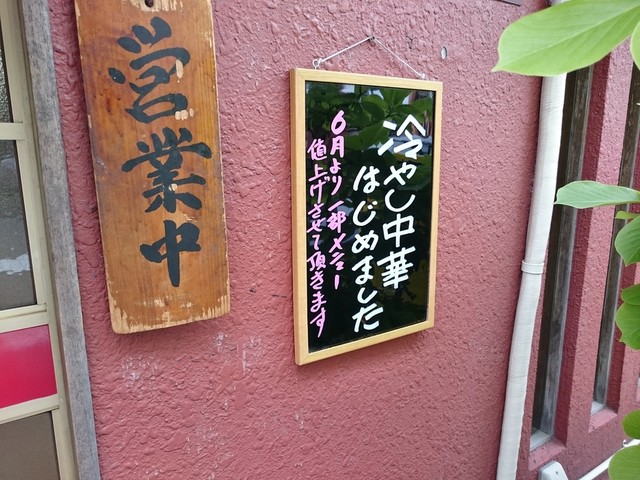 営業中
冷やし中華
はじめました
6月より一部メニュー
値上げさせて頂きます